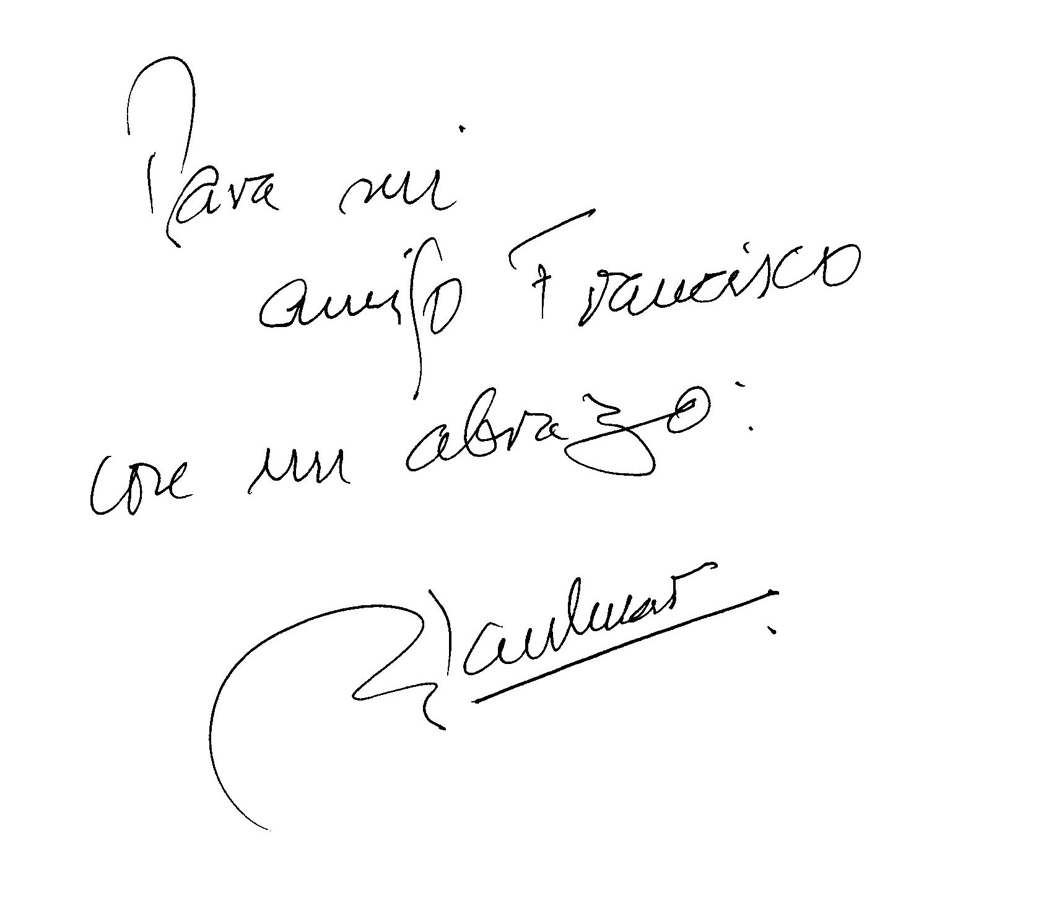 Para mi
amigo Francisco
con un abrazo: